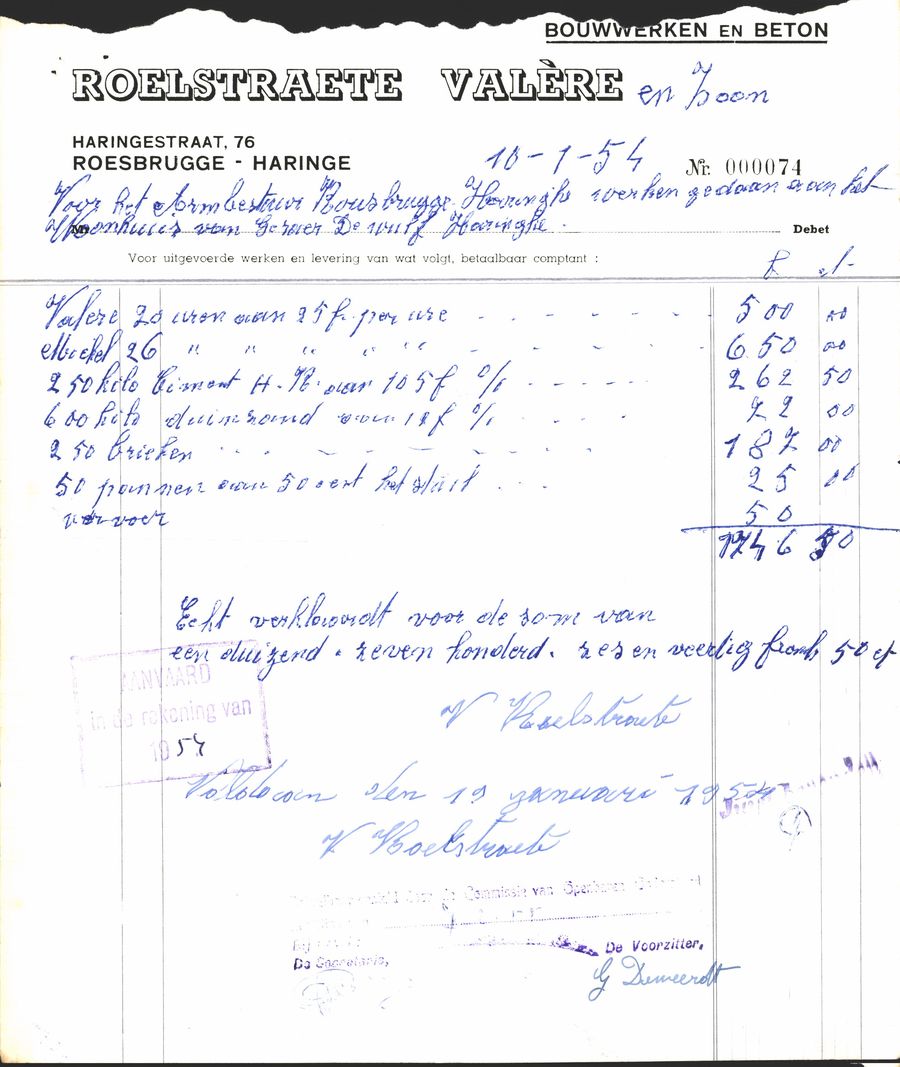 BOUWWERKEN EN BETON
ROELSTRAETE VALÈRE en Zoon
HARINGESTRAAT, 76
ROESBRUGGE - HARINGE
10-1-54 Nr. 000074
Voor het Armbestuur Rousbrugge-Haringhe werken gedaan aan het
Woonhuis van De Wulf Haringhe.
Debet
Voor uitgevoerde werken en levering van wat volgt, betaalbaar comptant :
Valere 20 uren aan 25 fr. per ure 500 00
Michel 26 " " " " " 650 00
250 kilo Ciment H-R aan 105 f % 262 50
600 kilo duinzand f % 72 00
250 brieken 187 00
50 pannen aan 50 cent het stuk 25 00
vervoer 50
1746 50
Echt verklaardt voor de som van
een duizend. zeven honderd. zes en veertig frank 50 ct
V Roelstraete
AANVAARD
in de rekening van
1954
Voldaan den 19 januari 1954
V Roelstraete
door de Commissie van Openbaren Onderstand
De Voorzitter,
De Secretaris,
G Demeerdt